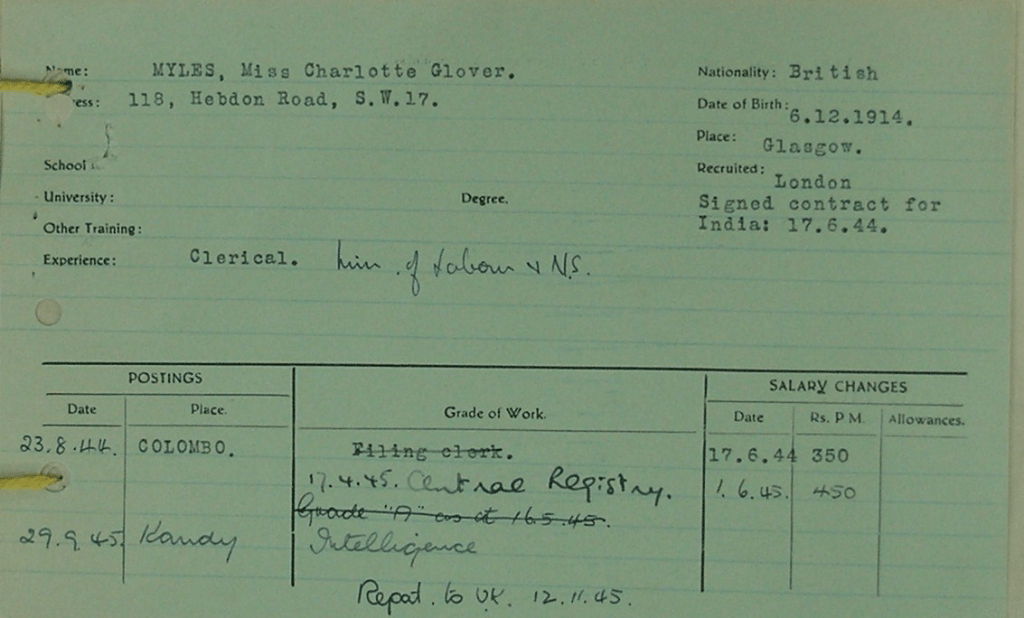 Name: MYLES, Miss Charlotte Glover. Nationality: British
ess: 118, Hebdon Road, S.W.17. Date of Birth: 6.12.1914.
Place: Glasgow.
School Recruited: London
University: Degree. Signed contract for
Other Training: India: 17.6.44.
Experience: Clerical. Min. of Labour & N.S.
POSTINGS SALARY CHANGES
Date Place. Grade of Work. Date Rs. P.M. Allowances.
23.8.44. COLOMBO. Filing clerk. 17.6.44 350
17.4.45. Central Registry. 1.6.45. 450
Grade "A" as at 16.5.45.
29.9.45. Kandy Intelligence
Repat. to UK. 12.11.45.